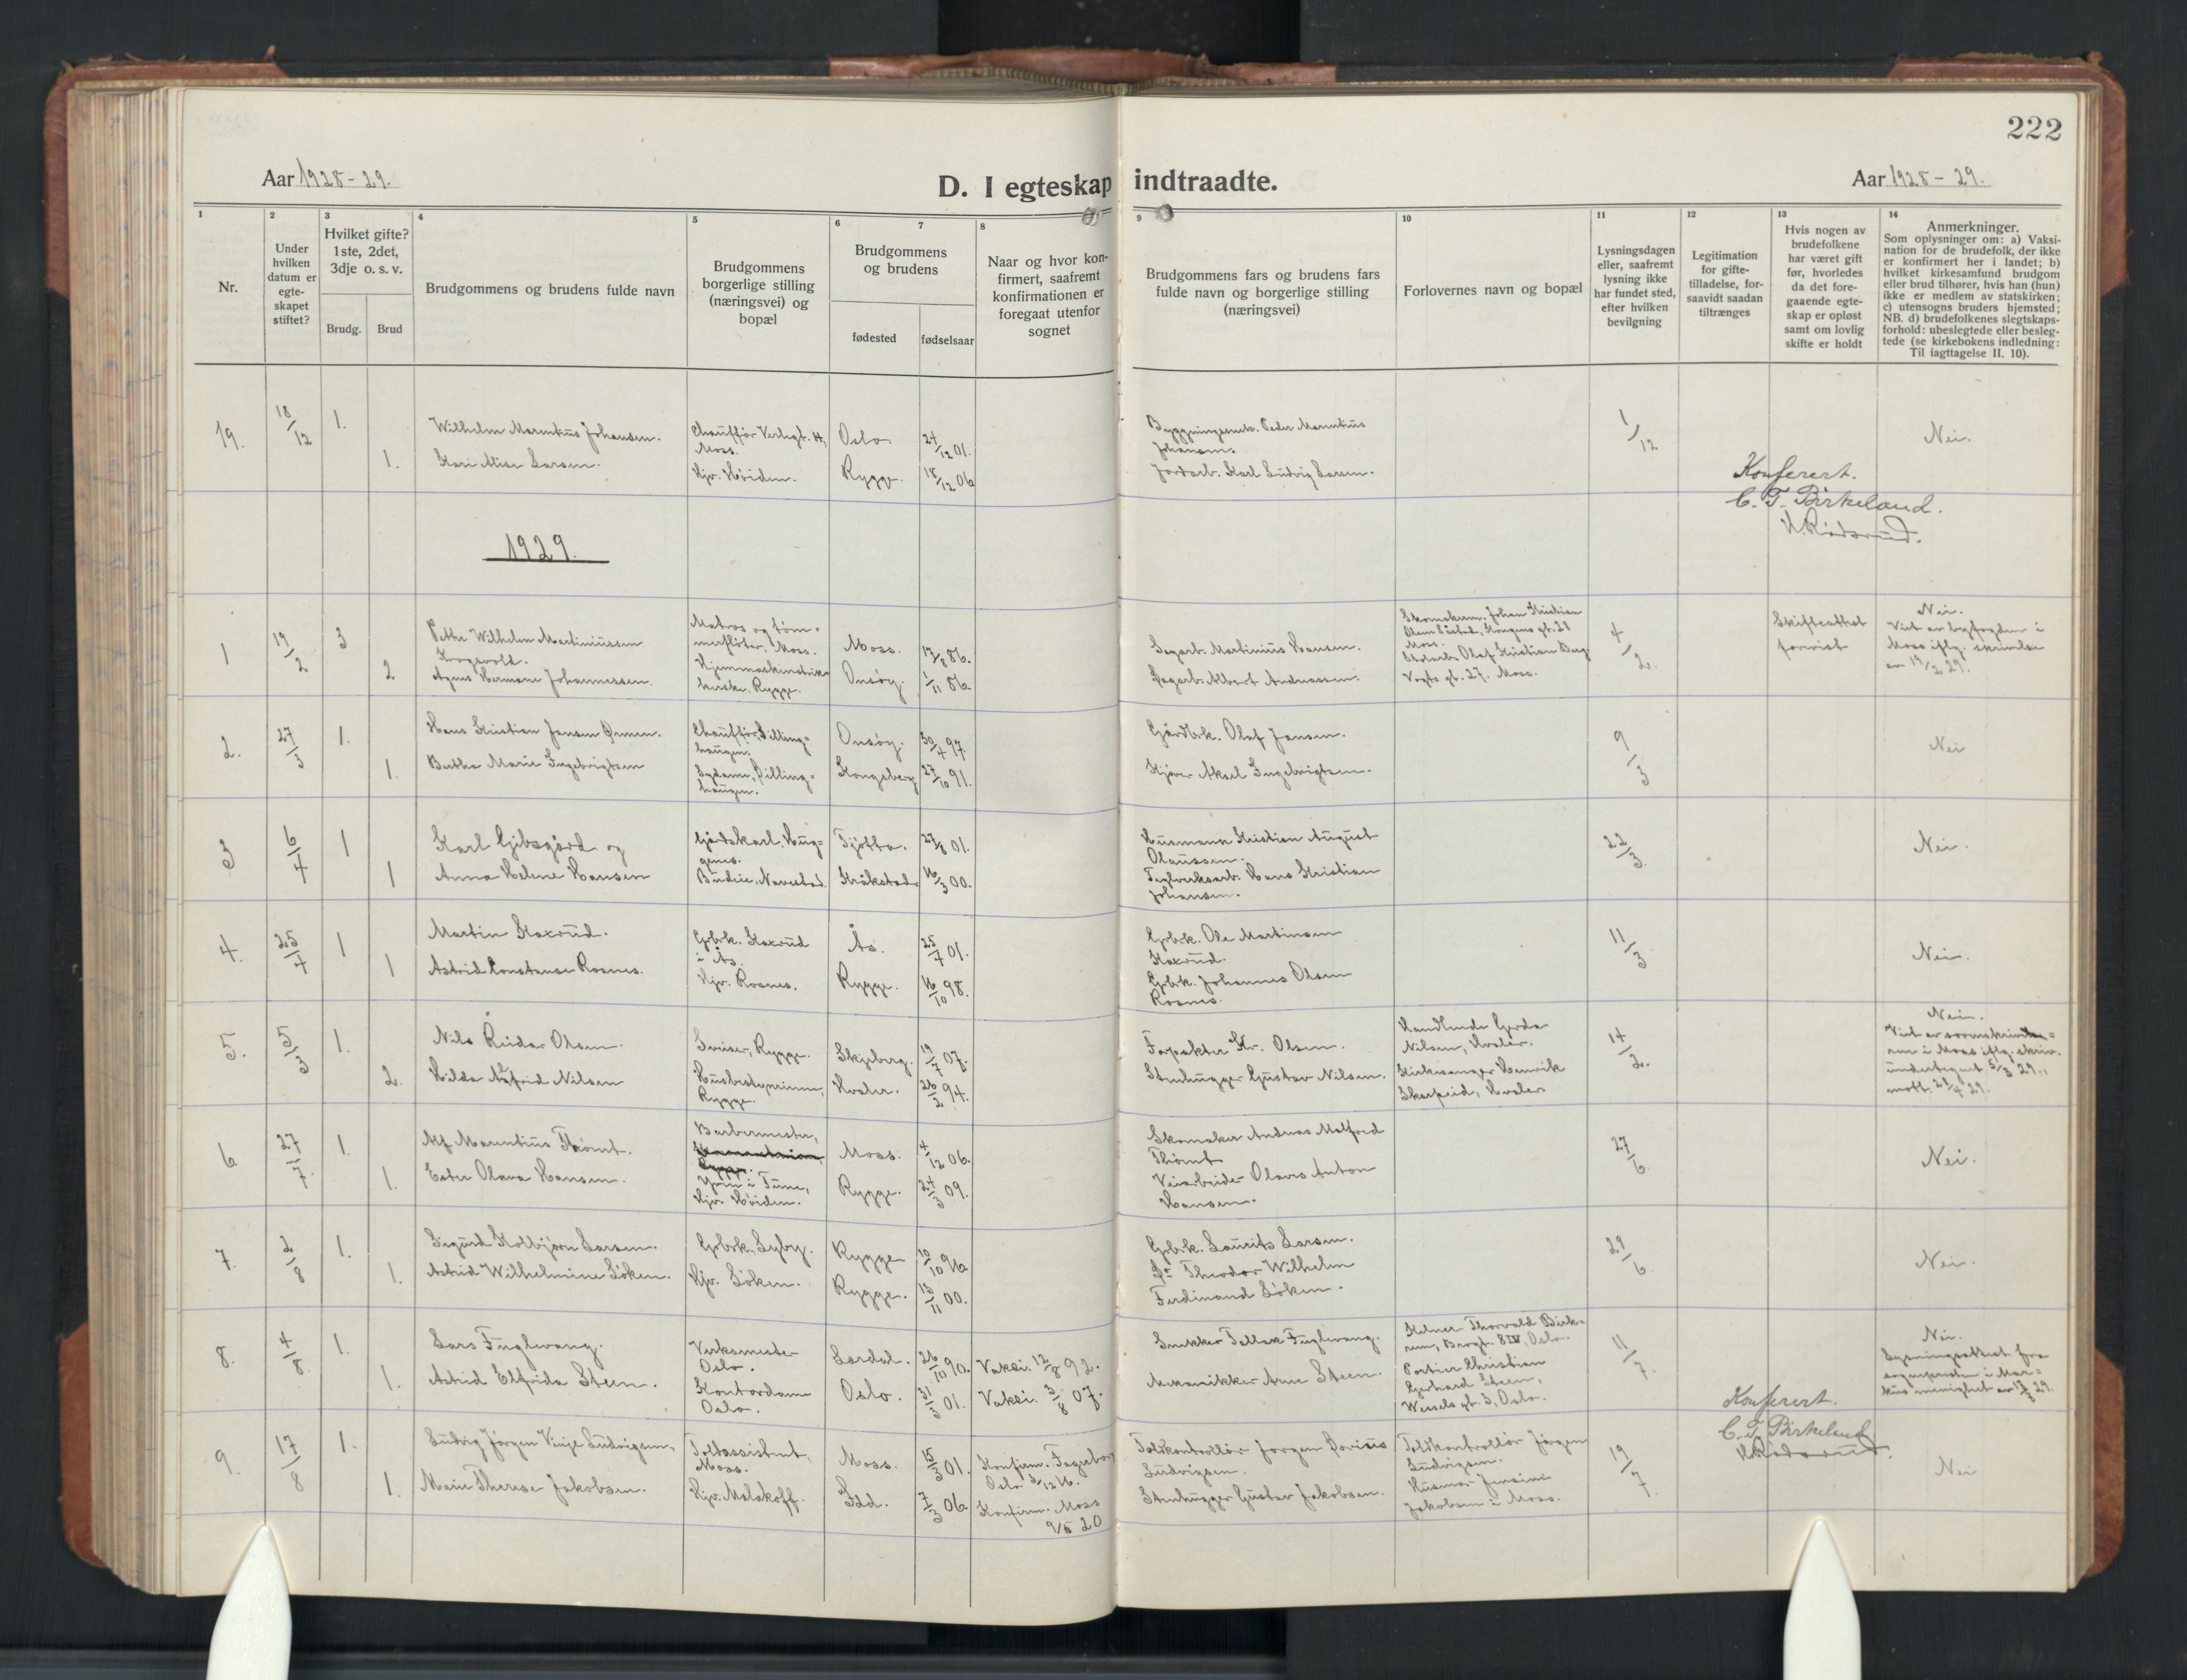 222
Aar 1928-29.
D. I egteskap indtraadte.
Aar 1928-29.
1
2
3
4
5
6
7
8
9
10
11
12
13
14
Nr.
Under hvilken datum er egte-skapet stiftet?
Hvilket gifte? 1ste, 2det, 3dje o. s. v.
Brudg.
Brud
Brudgommens og brudens fulde navn
Brudgommens borgerlige stilling (næringsvei) og bopæl
Brudgommens og brudens
fødested
fødselsaar
Naar og hvor kon-firmert, saafremt konfirmationen er foregaat utenfor sognet
Brudgommens fars og brudens fars fulde navn og borgerlige stilling (næringsvei)
Forlovernes navn og bopæl
Lysningsdagen eller, saafremt lysning ikke har fundet sted, efter hvilken bevilgning
Legitimation for gifte-tilladelse, for-saavidt saadan tiltrænges
Hvis nogen av brudefolkene har været gift før, hvorledes da det fore-gaaende egte-skap er opløst samt om lovlig skifte er holdt
Anmerkninger.
Som oplysninger om: a) Vaksi-
nation for de brudefolk, der ikke
er konfirmert her i landet; b)
hvilket kirkesamfund brudgom
eller brud tilhører, hvis han (hun)
ikke er medlem av statskirken;
c) utensogns bruders hjemsted;
NB. d) brudefolkenes slegtskaps-
forhold: ubeslegtede eller besleg-
tede (se kirkebokens indledning:
Til iagttagelse II. 10).
19. 18/12 1. Wilhelm Marentius Johansen. Chauffør Verlegt. 14, Moss. Oslo. 24/12 01. Byggningssnek. Peder Marentius Johansen. 1/12 Nei.
1. Kari Alise Larsen. Hjv. Høiden. Rygge. 18/12 06 Jordarb. Karl Ludvig Larsen.
Konferert.
C. F. Birkeland.
1929.
1 19/2 3 Petter Wilhelm Martiniussen Krogsvold. Matros og tøm-merfløter. Moss. Moss. 17/8 86. Sagarb. Martinius Hansen. 4/2. Skifteattest forevist Nei.
2 Agnes Hermane Johannessen. Rygge. Onsøy. 1/11 86 Dagarb. Albert Andreassen. Stolarb. Olaf Kristian Berg Vogts gt. 27. Moss.
Viet av byfogden i Moss iflg. skrivelse av 19/2 29.
2. 27/3 1. Hans Kristian Jansen Ørmen. Chauffør, Dilling-haugen. Onsøy. 30/4 97. Gårdbrk. Olaf Jansen. 9/3 Nei
1. Bertha Marie Ingebrigtsen Sydame, Dilling-haugen. Kongsberg 27/10 91. Kjører Aksel Ingebrigtsen.
3 6/4 1 Karl Gibsgård og Gårdskarl. Hug-genes. Tjøtta. 27/8 01. Husmann Kristian August Olaussen. 22/3. Nei.
1 Anna Helene Hansen Budeie. Navestad. Kråkstad. 16/3 00. Teglverksarb. Hans Kristian Johansen.
4. 25/4 1 Martin Kaxrud. Gbrk. Kaxrud i Ås. Ås. 25/7 01. Gbrk. Ole Martinsen Kaxrud. 11/3 Nei.
1 Astrid Constanse Rosnes. Hjv. Rosnes. Rygge. 16/10 98. Gbrk. Johannes Olsen Rosnes.
5. 5/3 1. Nils Reidar Olsen. Sveiser, Rygge. Skjeberg. 19/7 07. Forpakter Kr. Olsen. Handlende Gerda Nilsen, Hvaler. 14/2. Nei.
2. Hilda Nilsen Husbestyrerinne, Rygge. Hvaler. 26/2 94. Stenhugger Gustav Nilsen. Kirkesanger Henrik Hvaler
6 27/7. 1. Alf Marentius Thømt. Barbermester, Moss. 4/12 06. Skomaker Andreas Thømt 27/6. Nei.
1. Ester Olava Hansen. Yven i Tune, Hjv. Høiden. Rygge. 24/3 09. Veiarbeider Olavs Anton Hansen.
7. 2/8 1. Sigurd Kolbjørn Larsen. Gbrk. Lyby. Rygge 10/10 96 Gbrk. Laurits Larsen. 29/6. Nei.
1. Astrid Wilhelmine Løken. Hjv. Løken. Rygge. 13/11 00. Do Theodor Wilhelm Ferdinand Løken.
8. 4/8 1. Lars Fuglevang. Verksmester Oslo. Lardal. 26/10 90. Vaksi. 12/8 92. Snekker Tellef Fuglevang. Kelner Thorvald Oslo. 11/7. Nei.
1. Astrid Elfrida Steen. Kontordame Oslo. Oslo. 31/3 01. Vaksi. 3/8 07. Mekanikker Arne Steen. Portier Christian Gerhard Steen, Wessels gt. 3, Oslo.
Lysningsattest fra sognepresten i Mar-kus menighet av 29.
Konferert.
C. F. Birkeland
9. 17/8 1. Ludvig Jørgen Vinje Ludvigsen, Tollassistent, Moss. Moss. 15/3 01. Konfirm. Fagerborg Oslo 3/12 16. Toldkontrollør Jørgen Ludvigsen. Toldkontrollør Jørgen Ludvigsen. 19/7. Nei
1. Marie Therese Jakobsen. Hjv. Malakoff. Idd. 7/3 06 Konfirm. Moss 9/5 20 Stenhugger Gustav Jakobsen. Husmor Jensine Jakobsen i Moss.